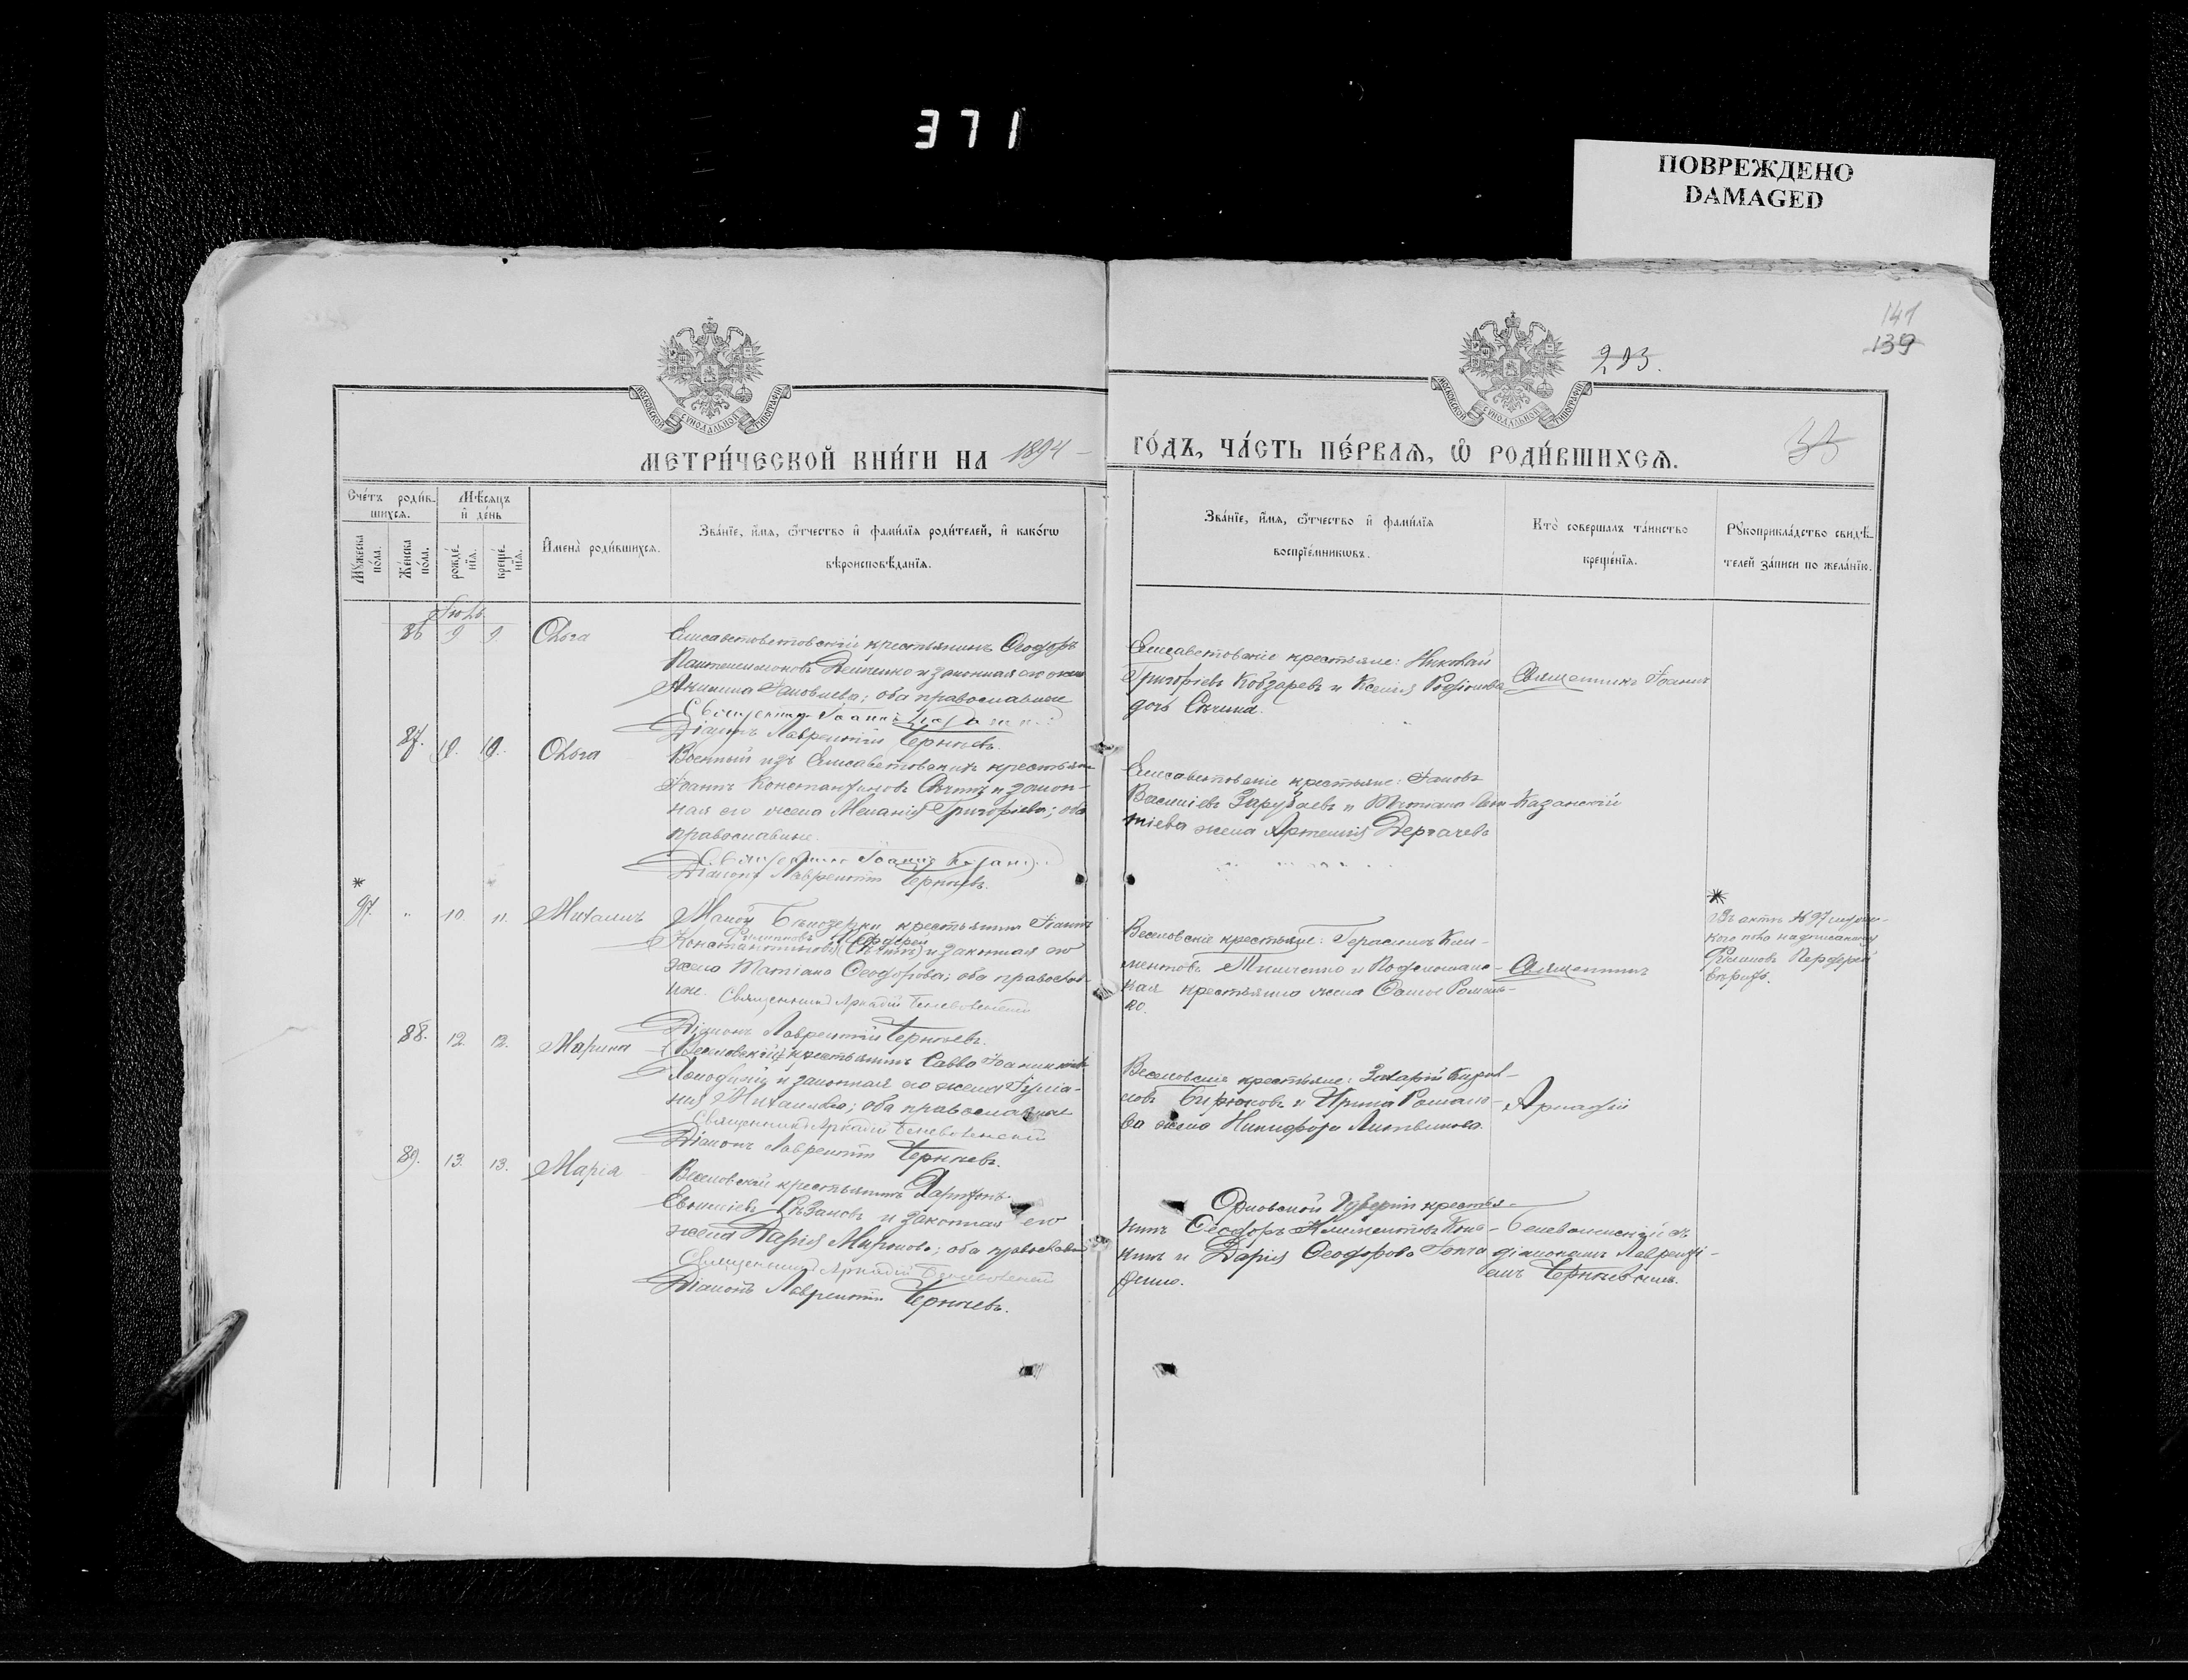 371
ПОВРЕЖДЕНО
DAMAGED
141
139
203.
33
МОСКОВСКОЙ СѴНОДАЛЬНОЙ ТИПОГРАФІИ
МОСКОВСКОЙ СѴНОДАЛЬНОЙ ТИПОГРАФІИ
МЕТРИ́ЧЕСКОЙ КНИ́ГИ НА 1894
ГО́ДЪ, ЧА́СТЬ ПЕ́РВАѦ, Ѡ҆ РОДИ́ВШИХСѦ.
Сче́тъ роди́в-
шихсѧ.
Мѣ́сѧцъ
и҆ де́нь
Мꙋ́жеска
по́ла.
Же́нска
по́ла.
рожде́-
нїѧ.
креще́-
нїѧ.
И҆мена̀ роди́вшихсѧ.
Зва́нїе, и҆́мѧ, ѻ҆́тчество и҆ фами́лїѧ роди́телей, и҆ како́гѡ
вѣроисповѣ́данїѧ.
Зва́нїе, и҆́мѧ, ѻ҆́тчество и҆ фами́лїѧ
воспрїе́мникѡвъ.
Кто̀ соверша́лъ та́инство
креще́нїѧ.
Рꙋкоприкла́дство свидѣ́-
телей за́писи по жела́нїю.
Іюль
86 9 9 Ольга
Елисаветовскій крестьянинъ Ѳеодоръ
Пантелеимоновъ Дейненко и законная его жена
Акилина Іаковлева; оба православные
Священникъ Іоаннъ Казанскій
Діаконъ Лаврентій Чернявъ.
Елисаветовскіе крестьяне: Николай
Григоріевъ Кобзаревъ и Ксенія Родіонова
дочь Сѣчина.
Священникъ Іоаннъ
87. 10. 10. Ольга
Военный изъ Елисаветовскихъ крестьянъ
Іоаннъ Константиновъ Сѣчинъ и закон-
ная его жена Меланія Григоріева; оба
православные.
Священникъ Іоаннъ Казанскій
Діаконъ Лаврентій Чернявъ.
Елисаветовскіе крестьяне: Іаковъ
Василіевъ Зарубаевъ и Татіана
тіева жена Артемія Дергачева
Казанскій
*
97. " 10 11. Михаилъ
Малой Бѣлозерки крестьянинъ Іоаннъ
Филиповъ Перферій
Константиновъ (Сѣчинъ) и законная его
жена Татіана Ѳеодорова; оба православ-
ные. Священникъ Аркадій Беневоленскій
Діаконъ Лаврентій Чернявъ.
Веселовскіе крестьяне: Герасимъ Кли-
ментовъ Тимченко и
кая крестьянка жена Ѳомы Романен-
ко.
Священникъ
*
Въ актѣ № 97
надписанному
Филиповъ Перферій
вѣрить.
88. 12. 12. Марина
Веселовскій крестьянинъ Савва Іоанникіевъ
и законная его жена Іуліа-
нія Михаилова; оба православные
Священникъ Аркадій Беневоленскій
Діаконъ Лаврентій Чернявъ.
Веселовскіе крестьяне: Захарій Кирил-
ловъ Бирюковъ и Ирина Романо-
ва жена Никифора Литвинова.
Аркадій
89. 13. 13. Марія
Веселовскій крестьянинъ Харитонъ
Евѳиміевъ Рѣзановъ и законная его
жена Дарія Миронова; оба православные
Священникъ Аркадій Беневоленскій
Діаконъ Лаврентій Чернявъ.
Орловской Губерніи крестья-
нинъ Ѳеодоръ Климентовъ
кинъ и Дарія Ѳеодорова
Беневоленскій съ
діакономъ Лавренті-
емъ Чернявымъ.